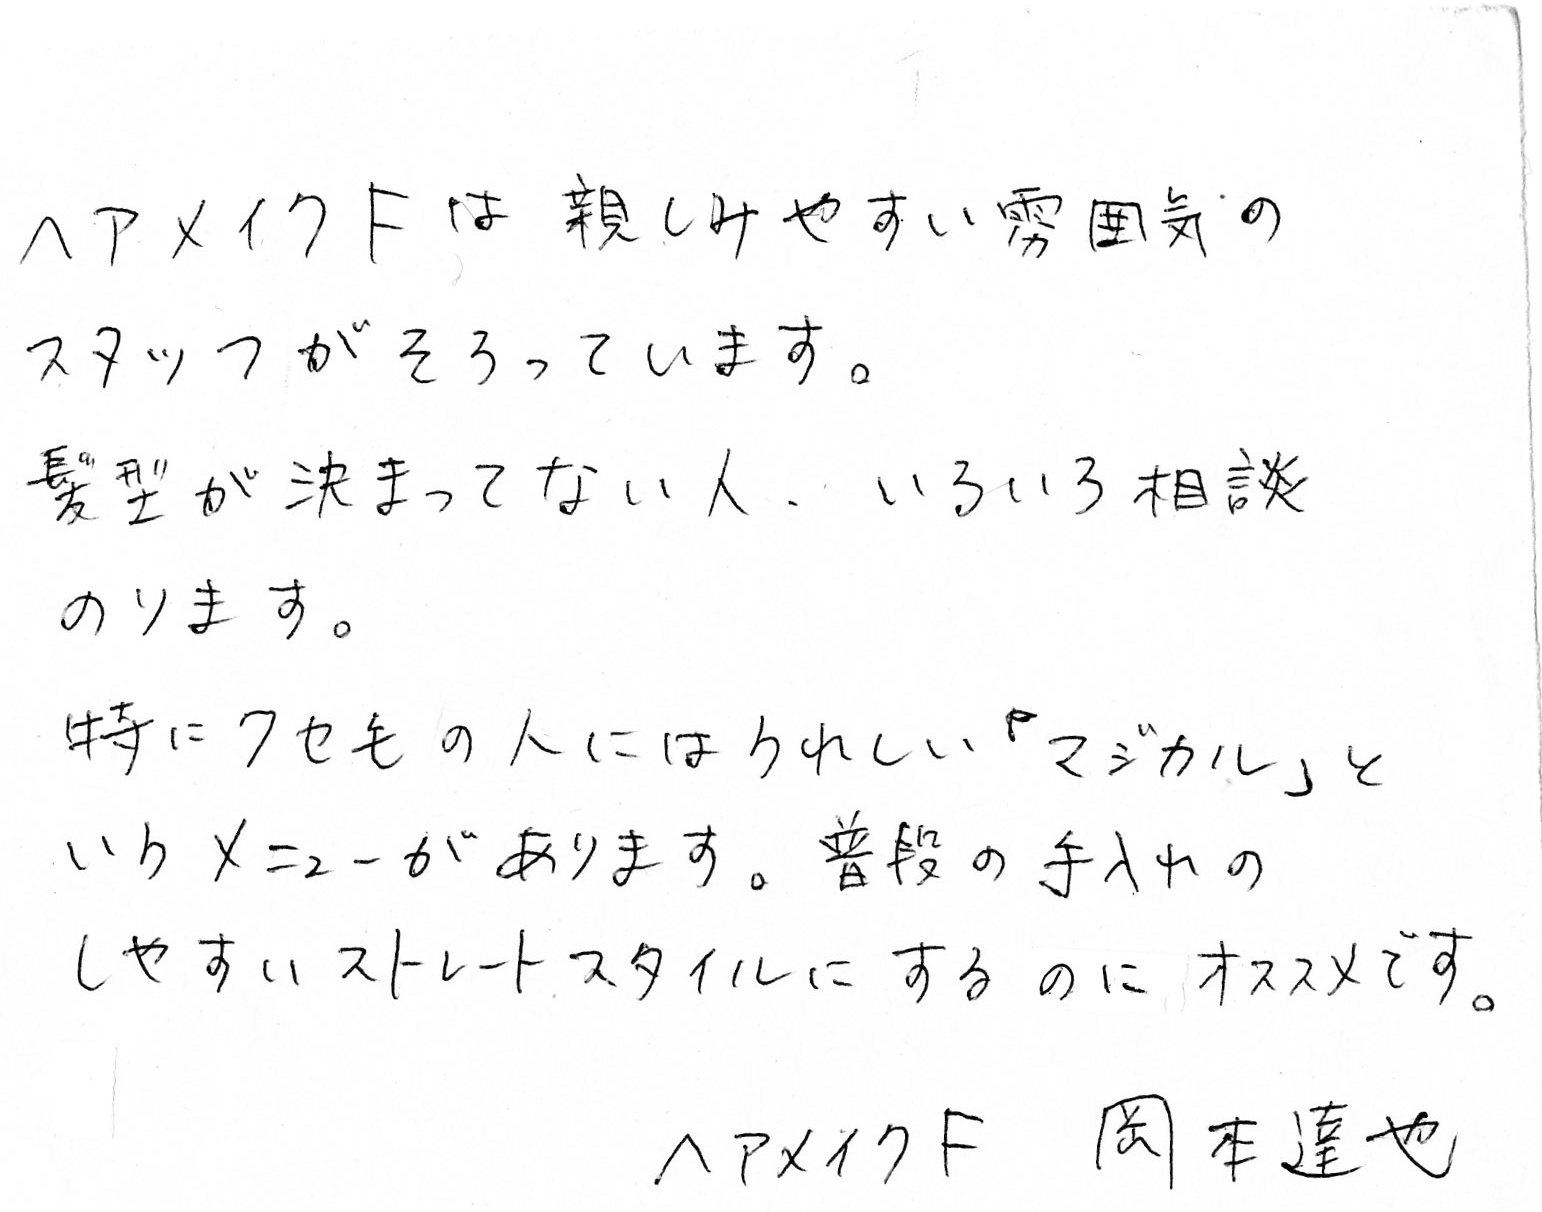 ヘアメイクFは親しみやすい雰囲気の
スタッフがそろっています。
髪型が決まってない人、いろいろ相談
のります。
特にクセ毛の人にはうれしい「マジカル」と
いうメニューがあります。普段の手入れの
しやすいストレートスタイルにするのにオススメです。
ヘアメイクF 岡本達也